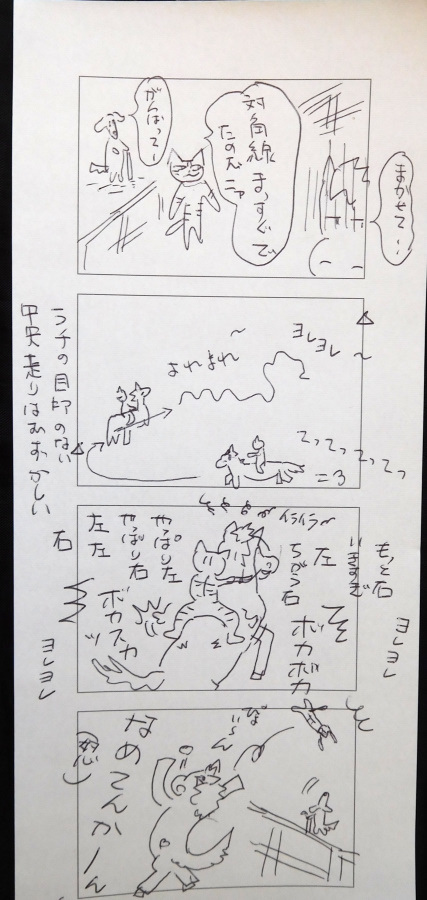 まかせてー
対角線
まっすぐで
たのむニャ
がんばってー
ヨレヨレ〜
よれよれ〜
てってってってっ
=3
ラチの目印のない
中央走りはむずかしい
もっと右
いきすぎ
イライラ〜
左
ちがう右
ボカボカ
やっぱ左
やっぱり右
左左
右
ボカスカッ
ヨレヨレ
ヨレヨレ
びよ〜ん
なめてんかーん
(怒)